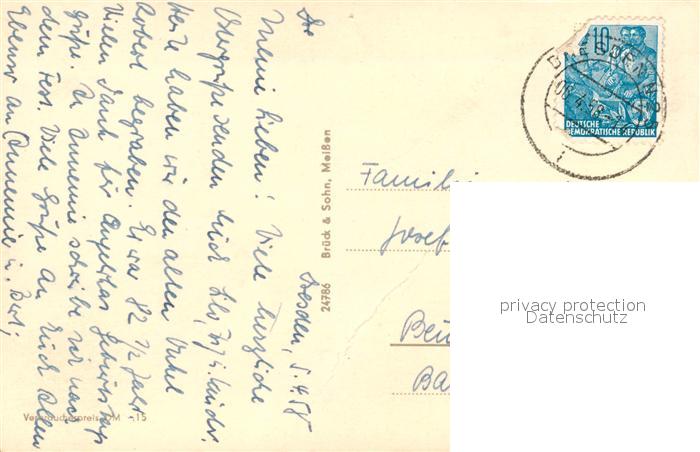 Dresden, 5.4.58
Meine Lieben! Viele herzliche
Ostergrüße senden Euch
Heute haben wir den alten Onkel
Robert begraben. Er war 82 ½ Jahr.
Vielen Dank für Geburtstags
grüße. An Annemie schreibe ich nach
dem Fest. Viele Grüße an Euch Allen
Ebenso an Annemie u.
24786 Brück & Sohn, Meißen
Verbraucherpreis DM -.15
10
DEUTSCHE
DEMOKRATISCHE REPUBLIK
DRESDEN
Familie
Josef
privacy protection
Datenschutz